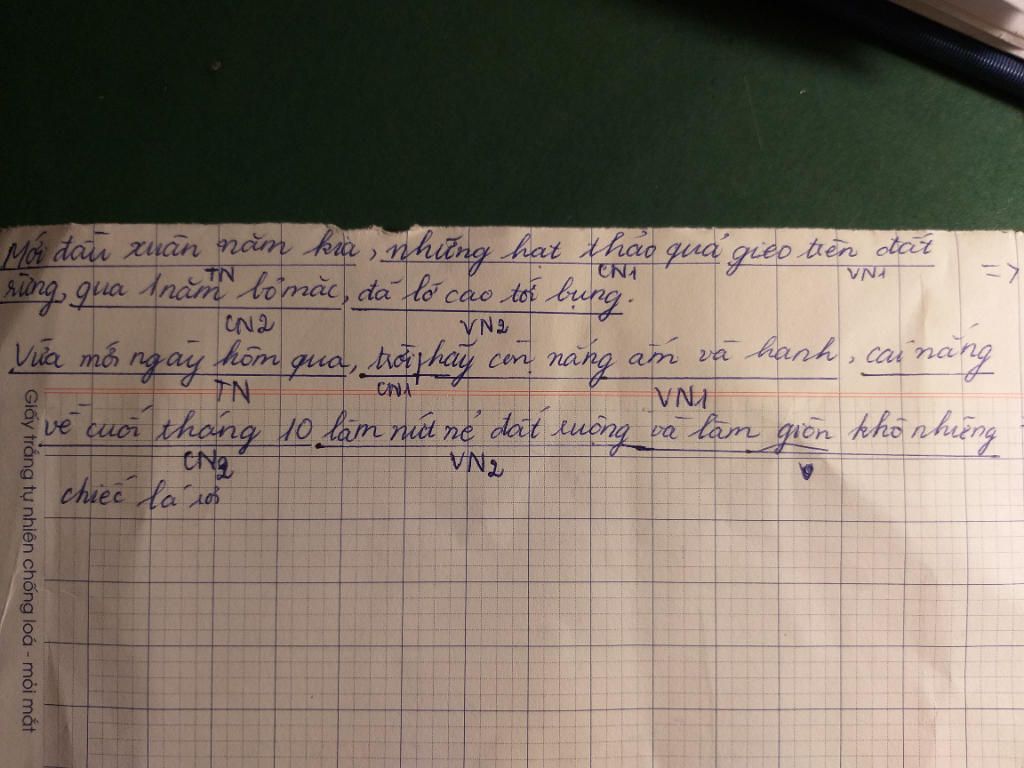 Mới đầu xuân năm kia, những hạt thảo quả gieo trên đất =>
TN CN1 VN1
rừng, qua 1 năm bỏ mặc, đã lớ cao tới bụng.
CN2 VN2
Vừa mới ngày hôm qua, trời hãy còn nắng ấm và hanh, cái nắng
TN CN1 VN1
về cuối tháng 10 làm nứt nẻ đất ruộng và làm giòn khô những
CN2 VN2
chiếc lá rơi
Giấy trắng tự nhiên chống loá - mỏi mắt